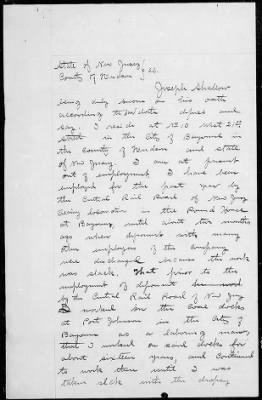 State of New Jersey }
County of Hudson } SS.
Joseph Shallow
being duly sworn on his oath
according to law doth depose and
say. I reside at No 10 West 21st
street in the City of Bayonne in
the County of Hudson and state
of New Jersey. I am at present
out of employment. I have been
employed for the past year by
the Central Rail Road of New Jersey
locomotives in the Round House
at Bayonne, until about two months
ago when deponent with many
other employees of the Company
were discharged because the work
was slack. That prior to the
employment of deponent
by the Central Rail Road of New Jersey
I worked on the Coal docks
at Port Johnson in the City of
Bayonne as a laboring man,
that I worked on said docks for
about sixteen years, and continued
to work there until I was
taken sick with the dropsy